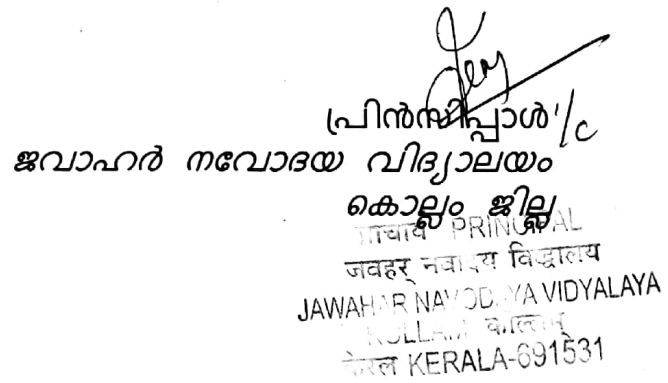 പ്രിൻസിപ്പാൾ i/c
ജവാഹർ നവോദയ വിദ്യാലയം
കൊല്ലം ജില്ല
PRINCIPAL
जवहर् नवादय विद्धालय
JAWAHAR NAVODAYA VIDYALAYA
KOLLAM कोल्लम्
केरल KERALA-691531